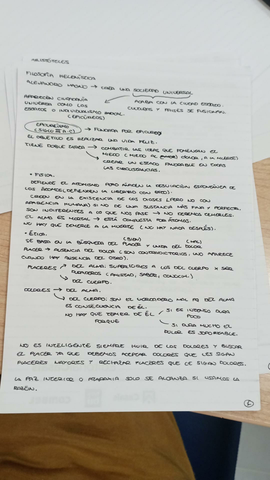 ARISTÓTELES
FILOSOFÍA HELENÍSTICA
ALEJANDRO MAGNO → CREA UNA SOCIEDAD UNIVERSAL
APARECEN CIUDADANÍA
UNIVERSAL COMO LOS
ESTOICOS O INDIVIDUALISMO RADICAL
(EPICÚREOS)
ACABA CON LA CIUDAD ESTADO.
CULTURAS Y PAÍSES SE FUSIONAN
EPICUREÍSMO
(SIGLO III A.C) → FUNDADA POR EPICURO
EL OBJETIVO ES REALIZAR UNA VIDA FELIZ.
TIENE DOBLE TAREA → COMBATIR LAS IDEAS QUE FOMENTAN EL
MIEDO (MIEDO AL DOLOR, A LA MUERTE)
→ CREAR UN ESTADO FAVORABLE EN TODAS
LAS CIRCUNSTANCIAS.
• FÍSICA:
DEFIENDE EL ATOMISMO PERO NIEGAN LA REGULACIÓN
LOS ÁTOMOS, DEFIENDEN LA LIBERTAD CON ESTO.
CREEN EN LA EXISTENCIA DE LOS DIOSES (PERO NO CON
APARIENCIA HUMANA) SINO DE UNA SUSTANCIA MÁS FINA Y PERFECTA
SON INDIFERENTES A LO QUE NOS PASE → NO DEBEMOS TEMERLES.
EL ALMA ES MORTAL → ESTÁ COMPUESTA POR ÁTOMOS.
NO HAY QUE TENERLE A LA MUERTE (NO HAY NADA DESPUÉS).
• ÉTICA:
(BIEN) (MAL)
SE BASA EN LA BÚSQUEDA DEL PLACER Y UNIDA DEL DOLOR
PLACER = AUSENCIA DEL DOLOR (SON CONTRADICTORIOS, UNO APARECE
CUANDO HAY AUSENCIA DEL OTRO).
PLACERES → DEL ALMA: SUPERIORES A LOS DEL CUERPO X SER
DURADEROS (AMISTAD, SABER, CONOCIM.)
→ DEL CUERPO.
DOLORES → DEL ALMA.
→ DEL CUERPO: SON EL VERDADERO MAL PQ DEL ALMA
ES CONSECUENCIA DE ÉL.
NO HAY QUE TEMER DE ÉL
PORQUE
→ SI ES INTENSO DURA
POCO
→ SI DURA MUCHO EL
DOLOR ES SOPORTABLE.
NO ES INTELIGENTE SIEMPRE HUIR DE LOS DOLORES Y BUSCAR
EL PLACER YA QUE DEBEMOS ACEPTAR DOLORES QUE LES SIGAN
PLACERES MAYORES Y RECHAZAR PLACERES QUE LE SIGAN DOLORES.
LA PAZ INTERIOR O ATARAXIA SOLO SE ALCANZA SI USAMOS LA
RAZÓN.